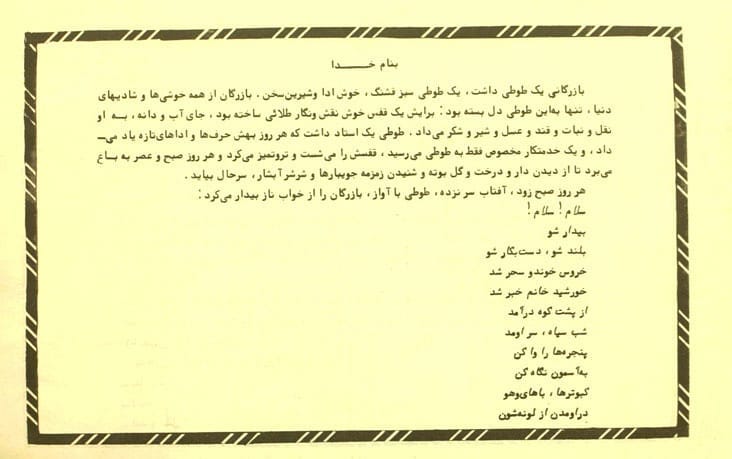 بنام خـــــدا
بازرگانی یک طوطی داشت، یک طوطی سبز قشنگ، خوش ادا وشیرین‌سخن. بازرگان از همه خوشی‌ها و شادیهای
دنیا، تنها به‌این طوطی دل بسته بود: برایش یک قفس خوش نقش ونگار طلائی ساخته بود، جای آب و دانه، بــه او
نقل و نبات و قند و عسل و شیر و شکر می‌داد. طوطی یک استاد داشت که هر روز بهش حرف‌ها و اداهای‌تازه یاد می‌ــ
داد، و یک خدمتکار مخصوص فقط به طوطی می‌رسید، قفسش را می‌شست و تروتمیز می‌کرد و هر روز صبح و عصر به بــاغ
می‌برد تا از دیدن دار و درخت و گل بوته و شنیدن زمزمه جویبارها و شرشرآبشار، سرحال بیاید.
هر روز صبح زود، آفتاب سر نزده، طوطی با آواز، بازرگان را از خواب ناز بیدار می‌کرد:
سلام! سلام!
بیدار شو
بلند شو، دست‌بکار شو
خروس خوندو سحر شد
خورشید خانم خبر شد
از پشت کوه درآمد
شب سیاه، سر اومد
پنجره‌ها را وا کن
به‌آسمون نگاه کن
کبوترها، باهای‌وهو
دراومدن از لونه‌شون